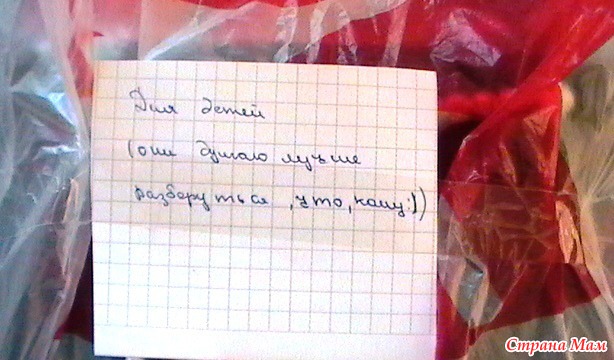 Для детей
(они думаю лучше
разберуться, что, кому:))
Страна Мам